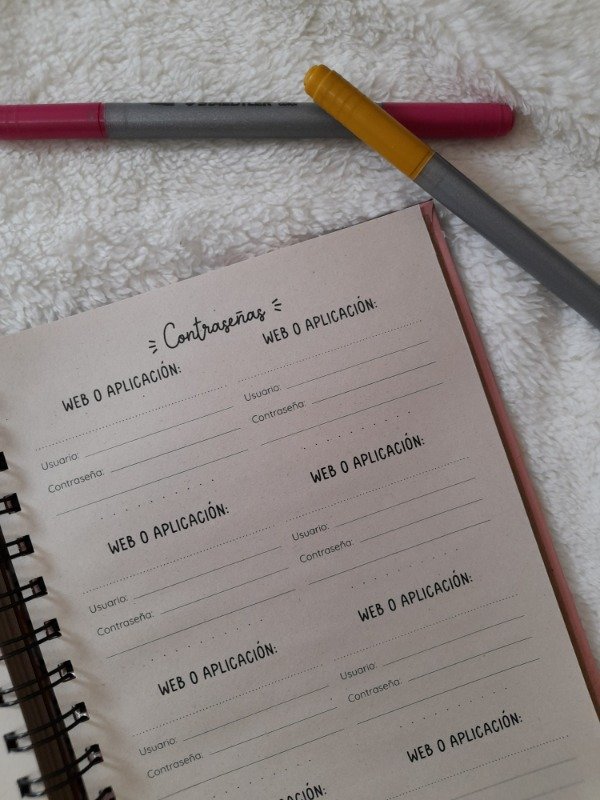 Contraseñas
WEB O APLICACIÓN:
Usuario:
Contraseña:
WEB O APLICACIÓN:
Usuario:
Contraseña:
WEB O APLICACIÓN:
Usuario:
Contraseña:
WEB O APLICACIÓN:
Usuario:
Contraseña:
WEB O APLICACIÓN:
Usuario:
Contraseña:
WEB O APLICACIÓN:
Usuario:
Contraseña:
WEB O APLICACIÓN: